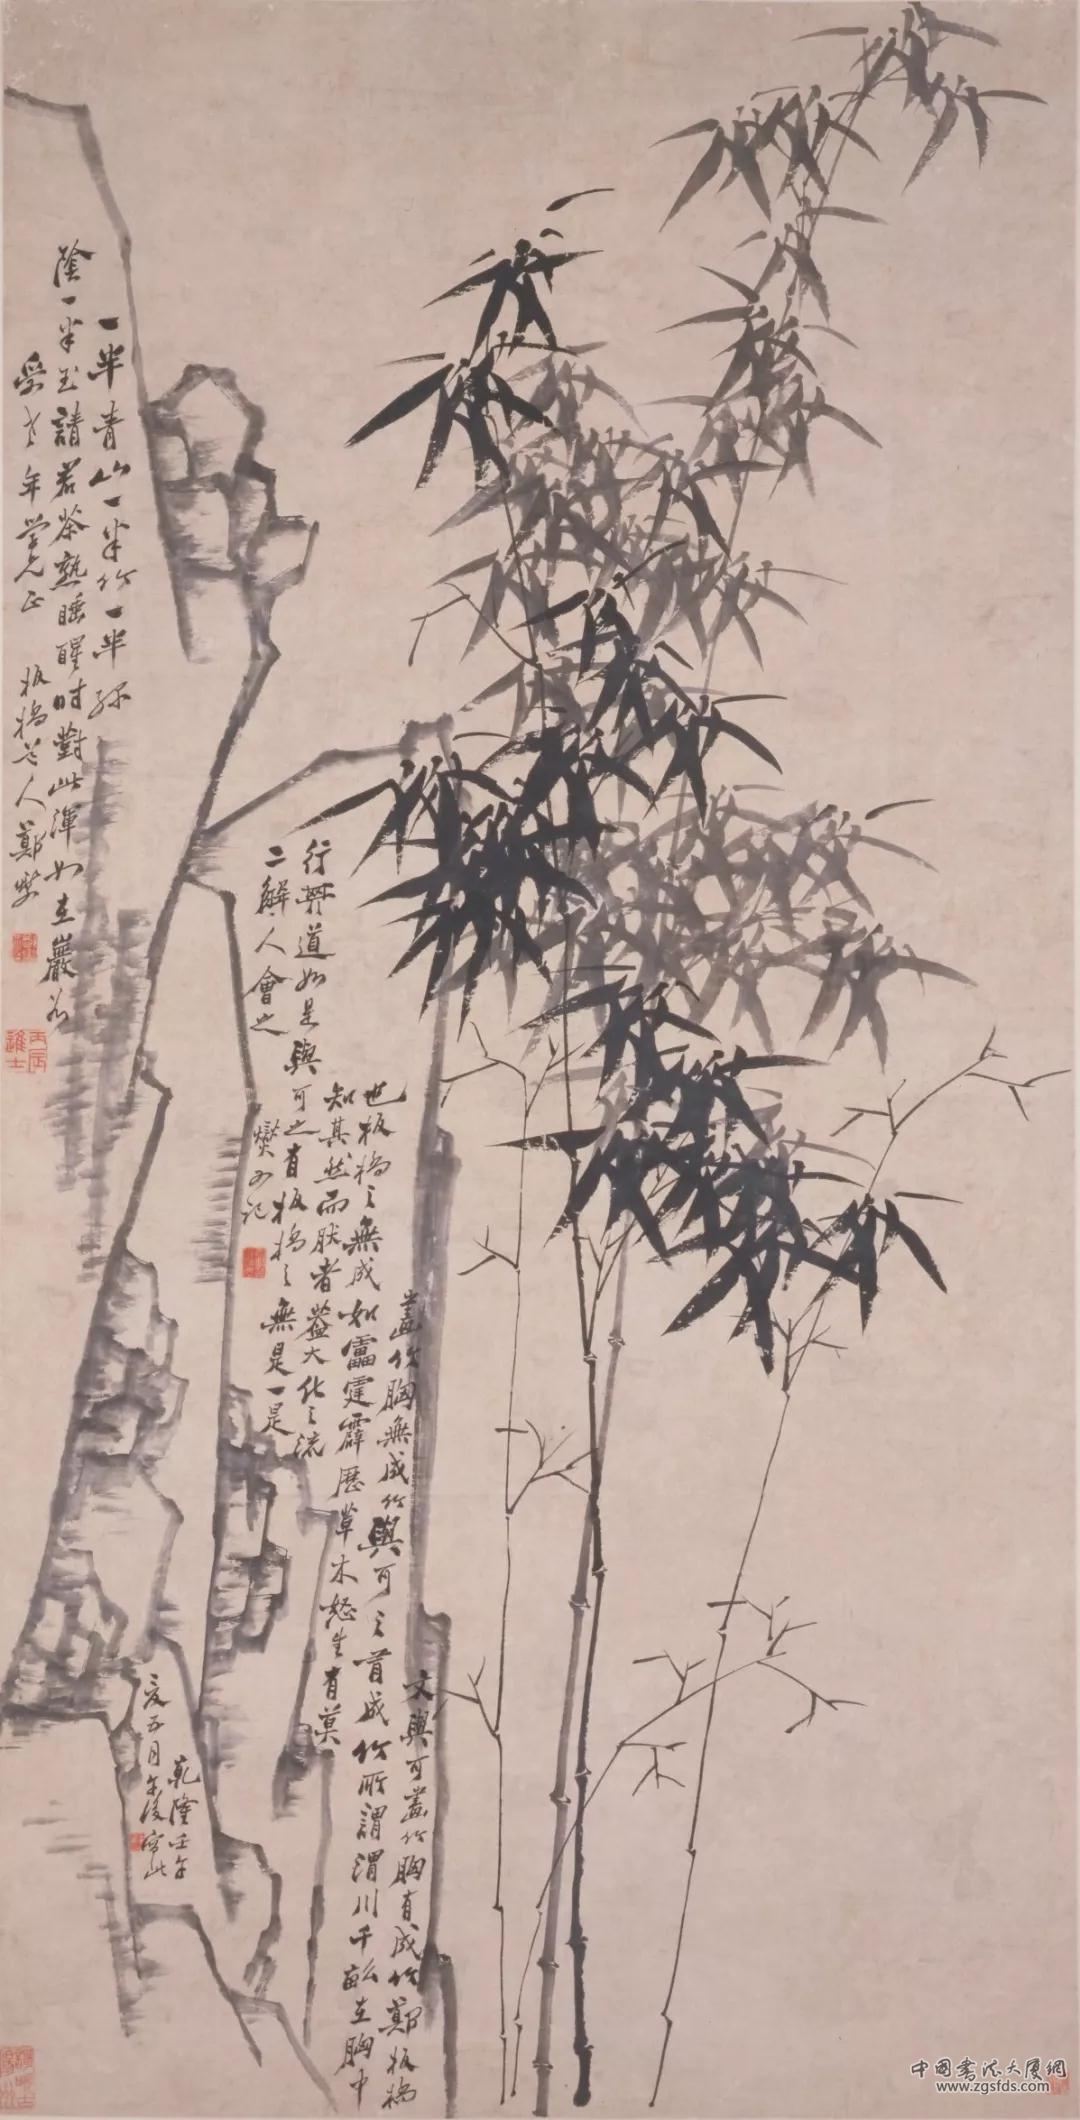 一半青山一半竹一半綠
陰一半玉請君茶熟睡醒時對此渾如在巖谷
受老年學兄正 板橋老人鄭燮
丙辰進士
文與可畫竹胸有成竹鄭板橋
畫竹胸無成竹與可之有成竹所謂渭川千畝在胸中
也板橋之無成如雷霆霹歷草木怒生有莫
知其然而然者蓋大化之流
行其道如是與可之有板橋之無是一是
二解人會之
燮又記
乾隆壬午
夏五月午後寫此
中國書法大廈網
www.zgsfds.com